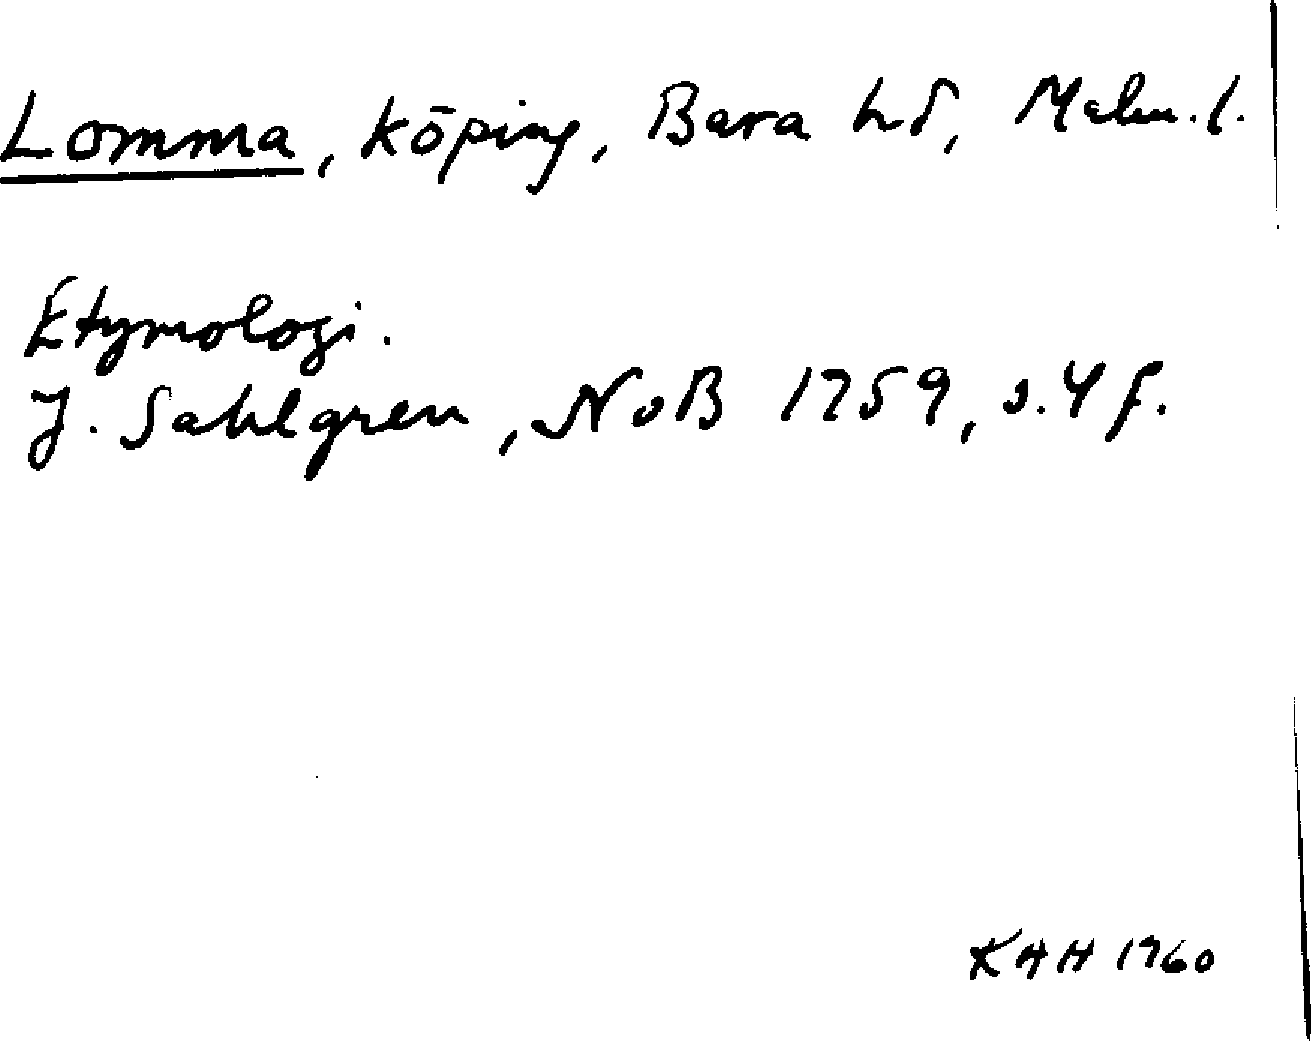 Lomma, köping, Bara hd, Malm. l.
Etymologi.
J. Sahlgren, NoB 1959, s. 4 f.
KAH 1960